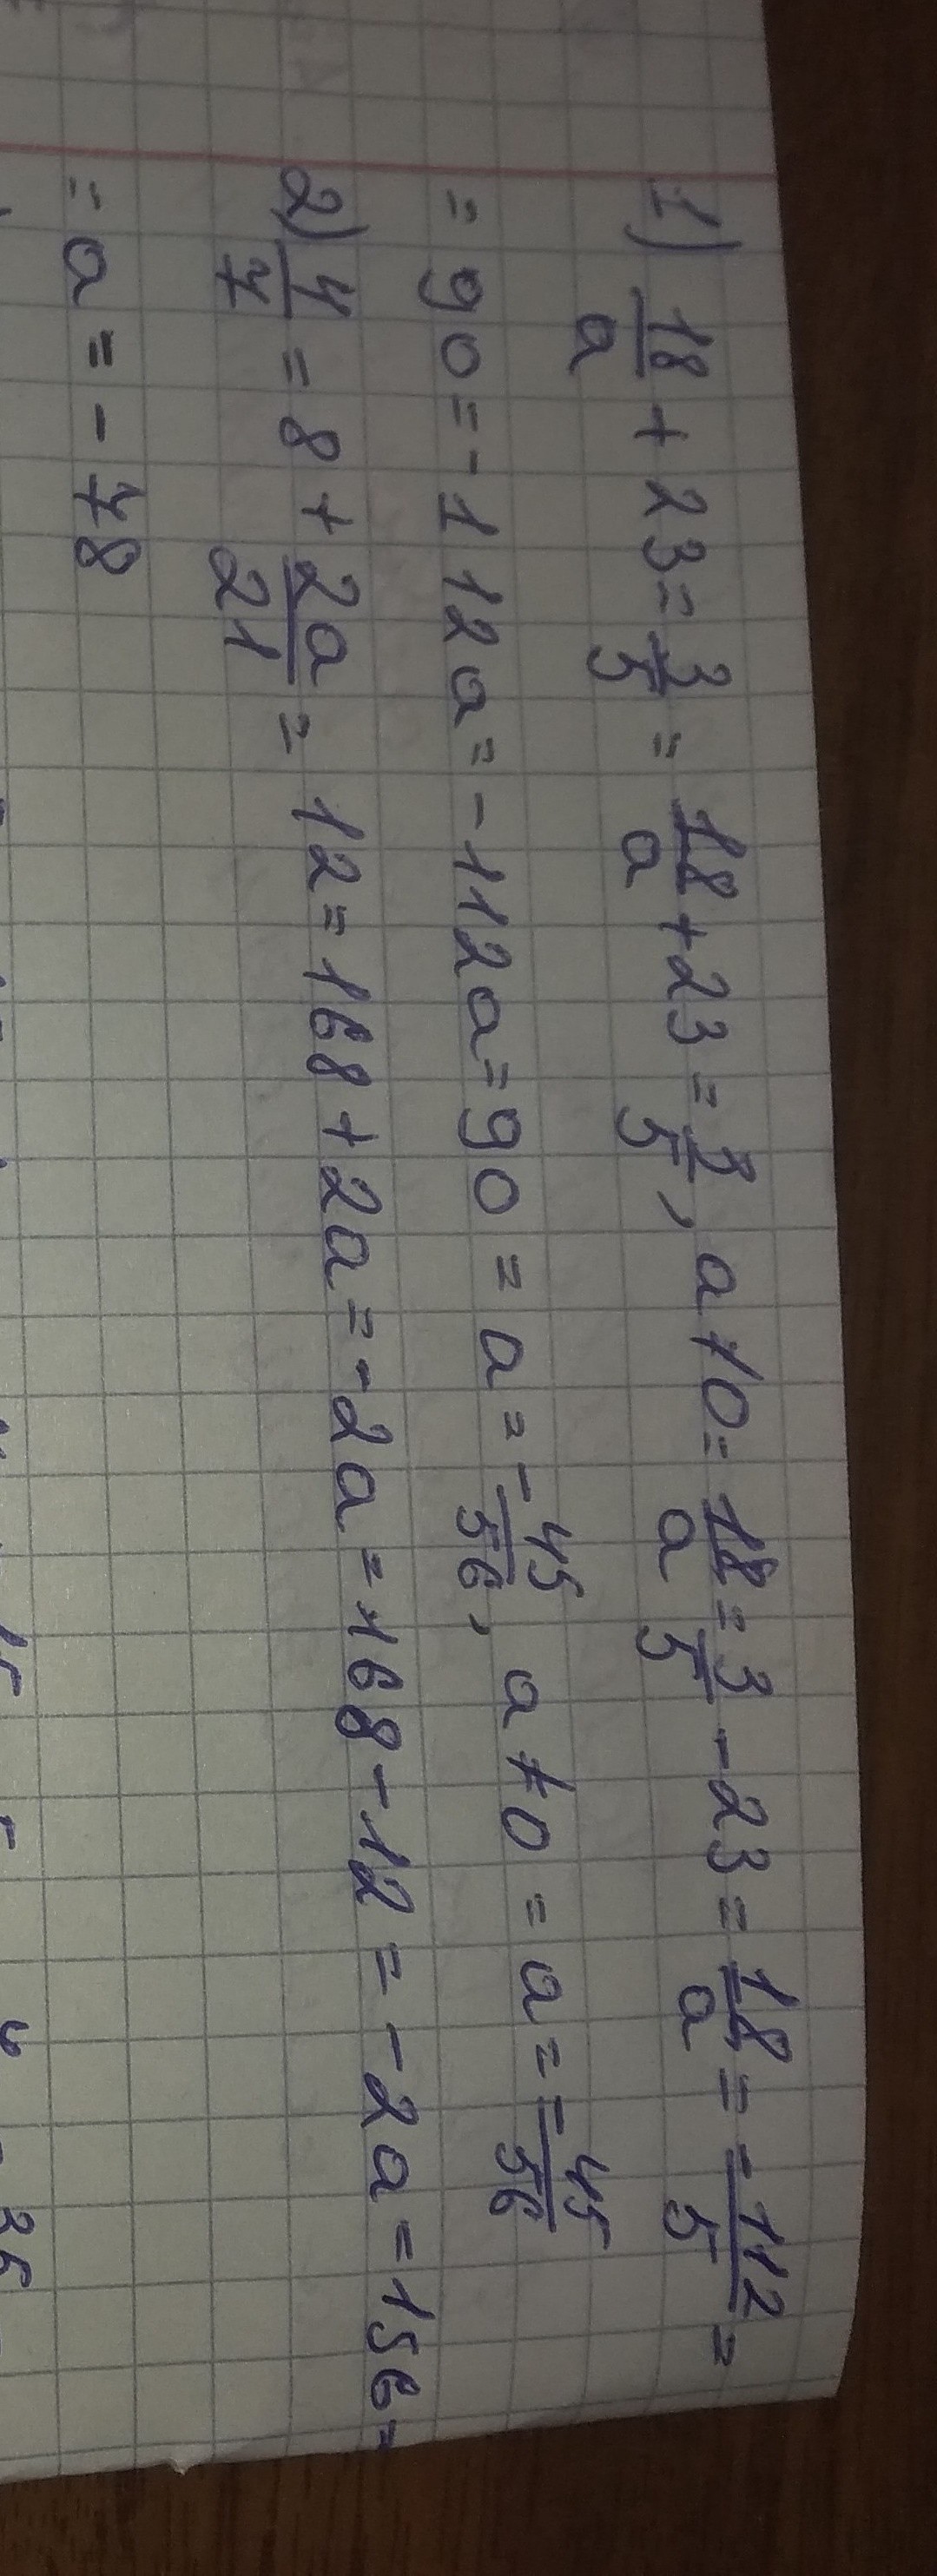 1) 18/a + 23 = 3/5 = 18/a + 23 = 3/5, a ≠ 0 = 18/a = 3/5 - 23 = 18/a = - 112/5 =
= 90 = -112a = -112a = 90 = a = - 45/56, a ≠ 0 = a = - 45/56
2) 4/7 = 8 + 2a/21 = 12 = 168 + 2a = -2a = 168 - 12 = -2a = 156 =
= a = -78